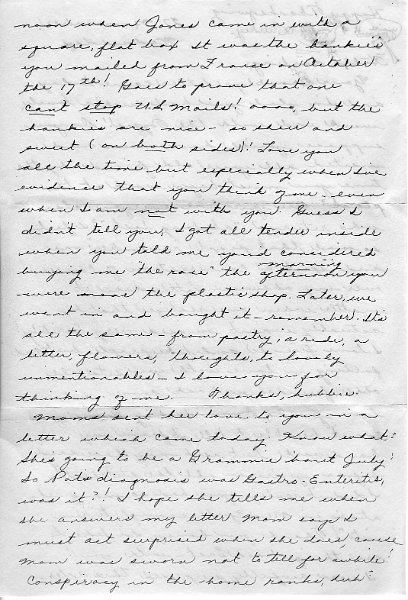 noon when Jones came in with a
square, flat box. It was the hankies
you mailed from Fraise on October
the 17th! Goes to prove that one
can't stop U.S. Mails! oooo, but the
hankies are nice - so sheer and
sweet (on both sides)! Love you
all the time but especially when I've
evidence that you think of me even
when I am not with you. Guess I
didn't tell you, I got all tender inside
when you told me you'd considered
buying me "the rose" the morning afternoon you
were near the plastic shop. Later, we
went in and bought it - remember. It's
all the same - from poetry, a ride, a
letter, flowers, thoughts, to lovely
unmentionables - I love you for
thinking of me. Thanks, hubbie.
Moms sent her love to you in a
letter which came today. Know what?
She's going to be a Grammie 'bout July!
So Pat's diagnosis was Gastro-Enterites,
was it?! I hope she tells me when
she answers my letter. Mom says I
must act surprised when she does, cause
Mom was sworn not to tell for awhile!
Conspiracy in the home ranks, huh?